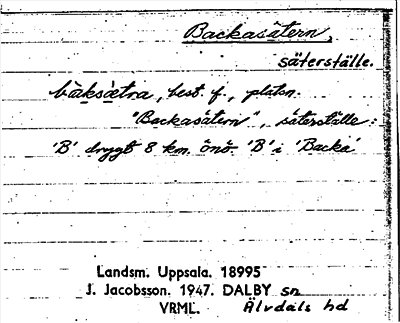 Backasätern,
säterställe.
bàksætra, best. f., platon.
"Backasätern", säterställe:
'B' drygt 8 km. önö. 'B' i 'Backa'
Landsm. Uppsala. 18995
J. Jacobsson. 1947. DALBY sn
VRML. Älvdals hd